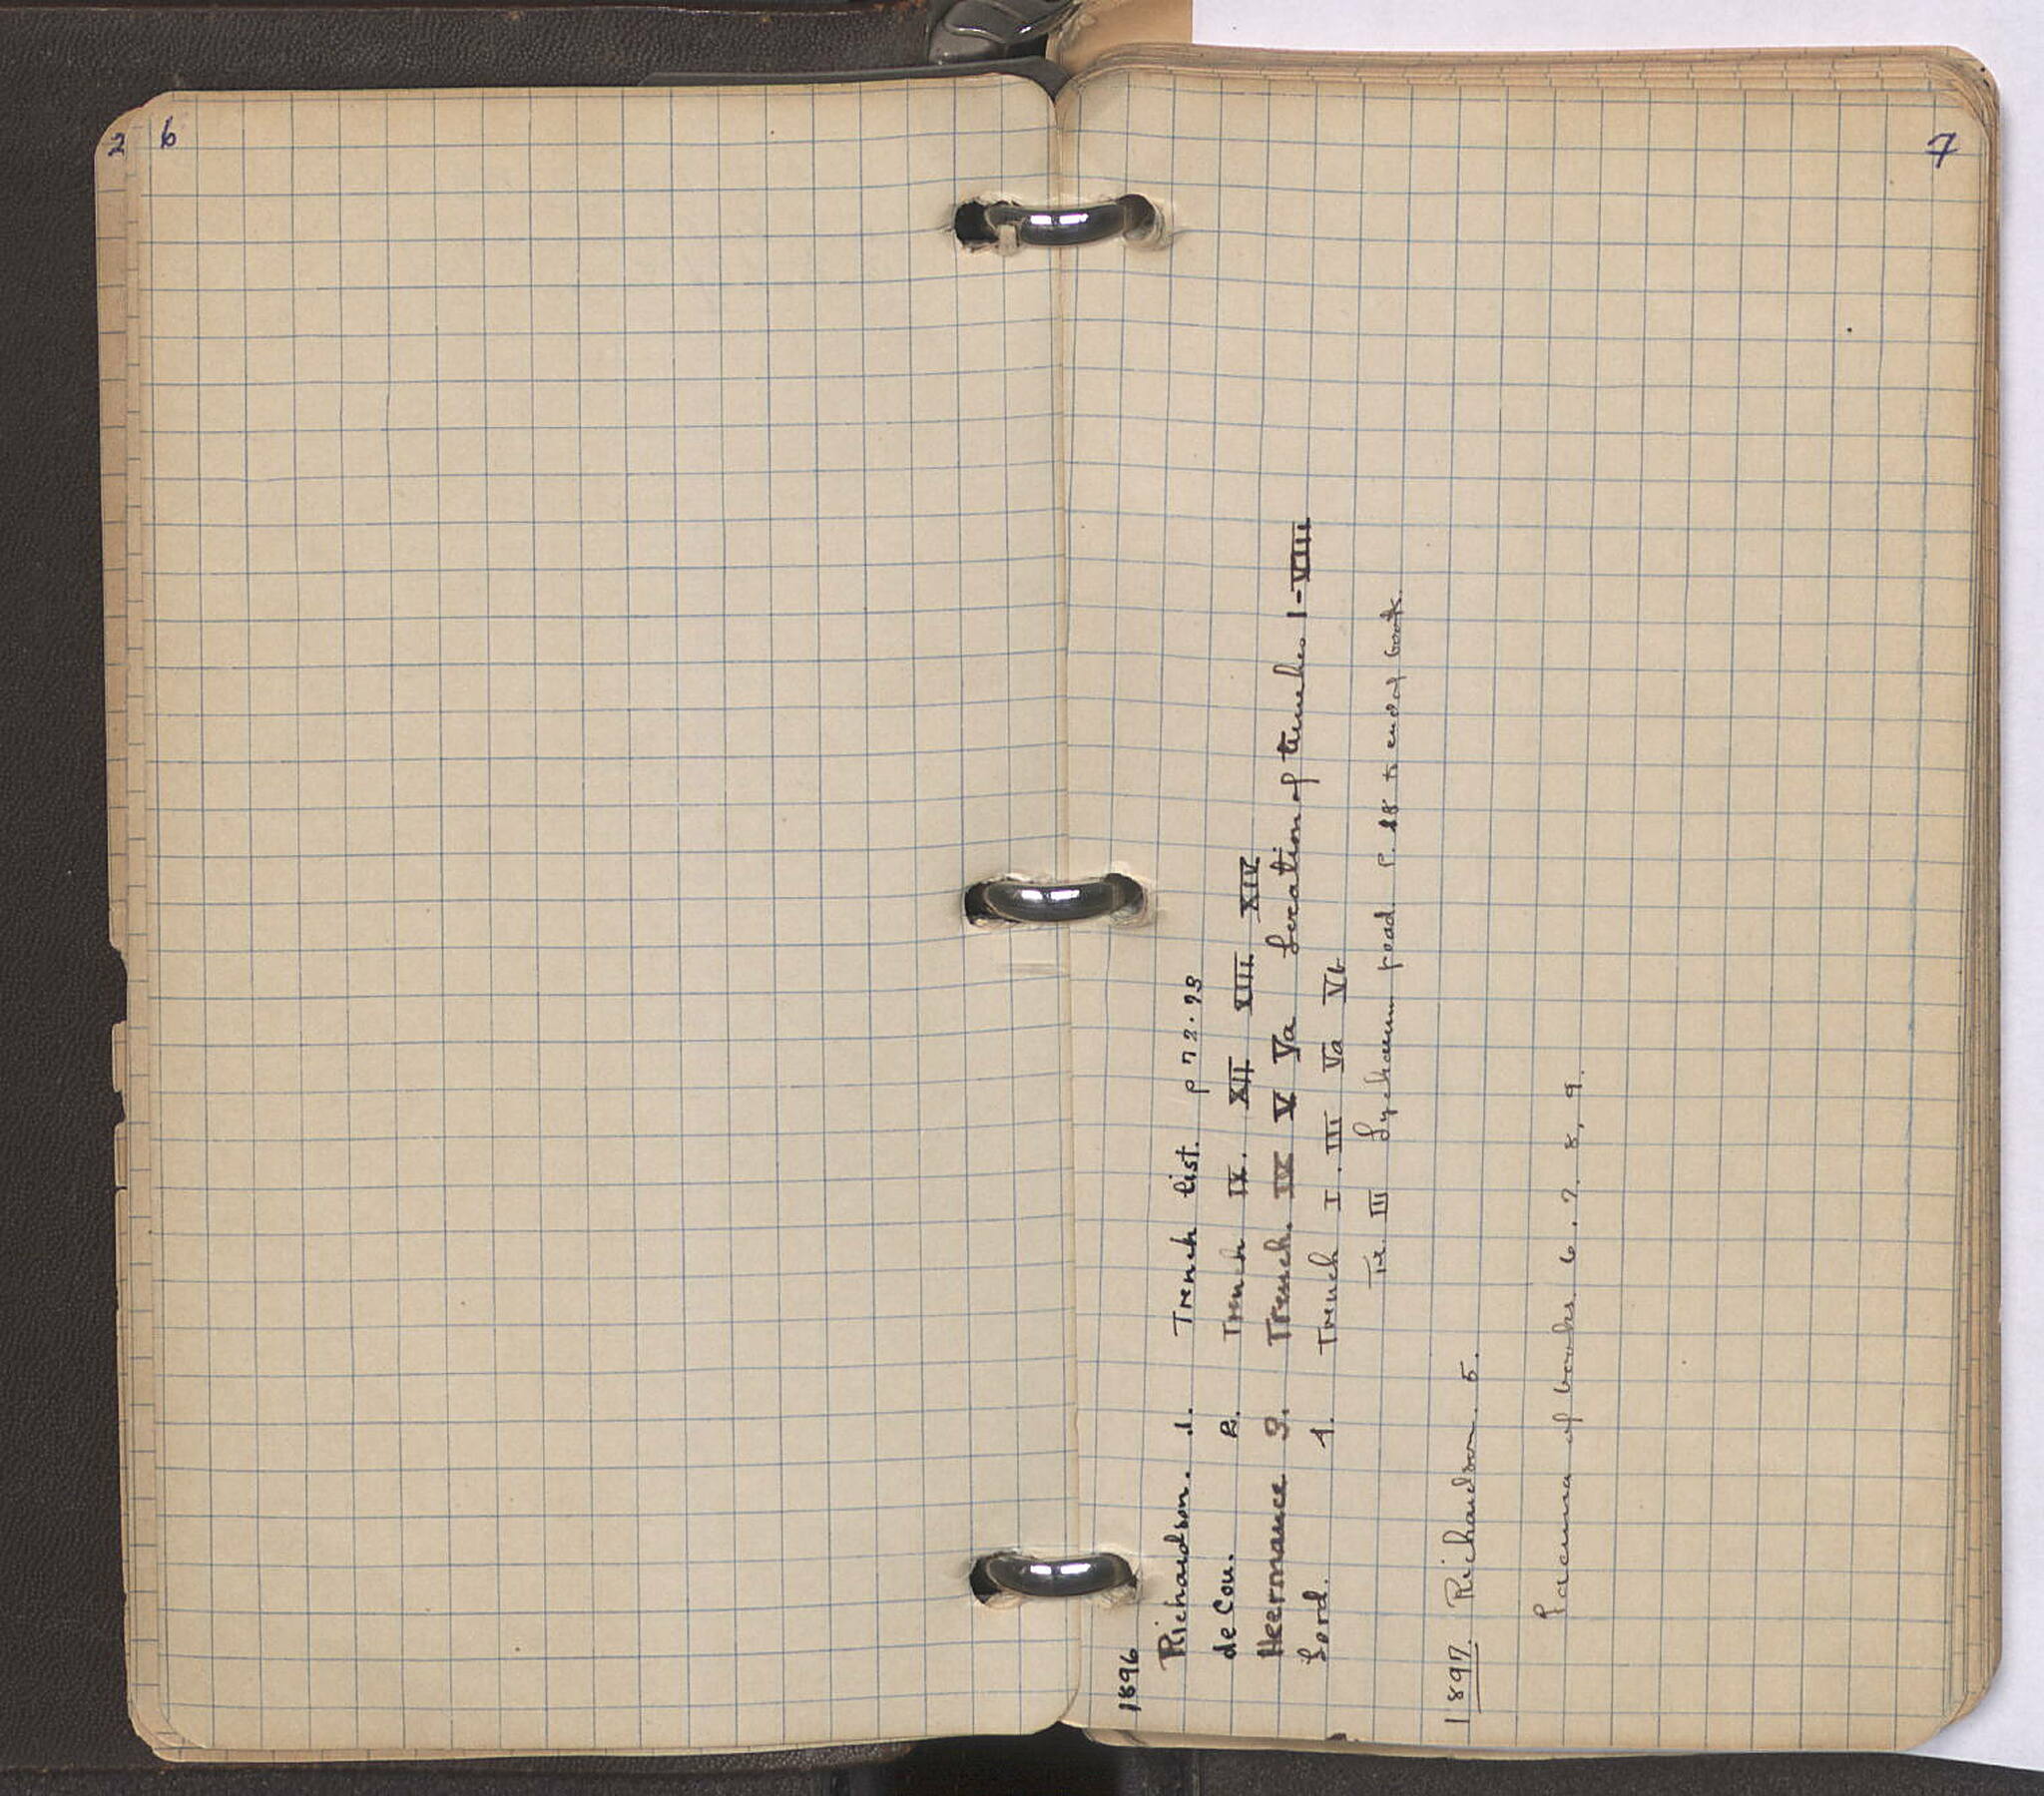 2 6
7
1896
Richardson. 1. Trench list. p 72.93
de Cou. 2. Trench IX. XII XIII XIV
Heermance 3. Trench. IV V Va Location of trenches 1-VIII
Lord. 4. Trench I. III Va Vb
Tr. III Lychaeum road. P. 28 to end of book.
1897. Richardson. 5.
Lacuna of books 6. 7. 8, 9.